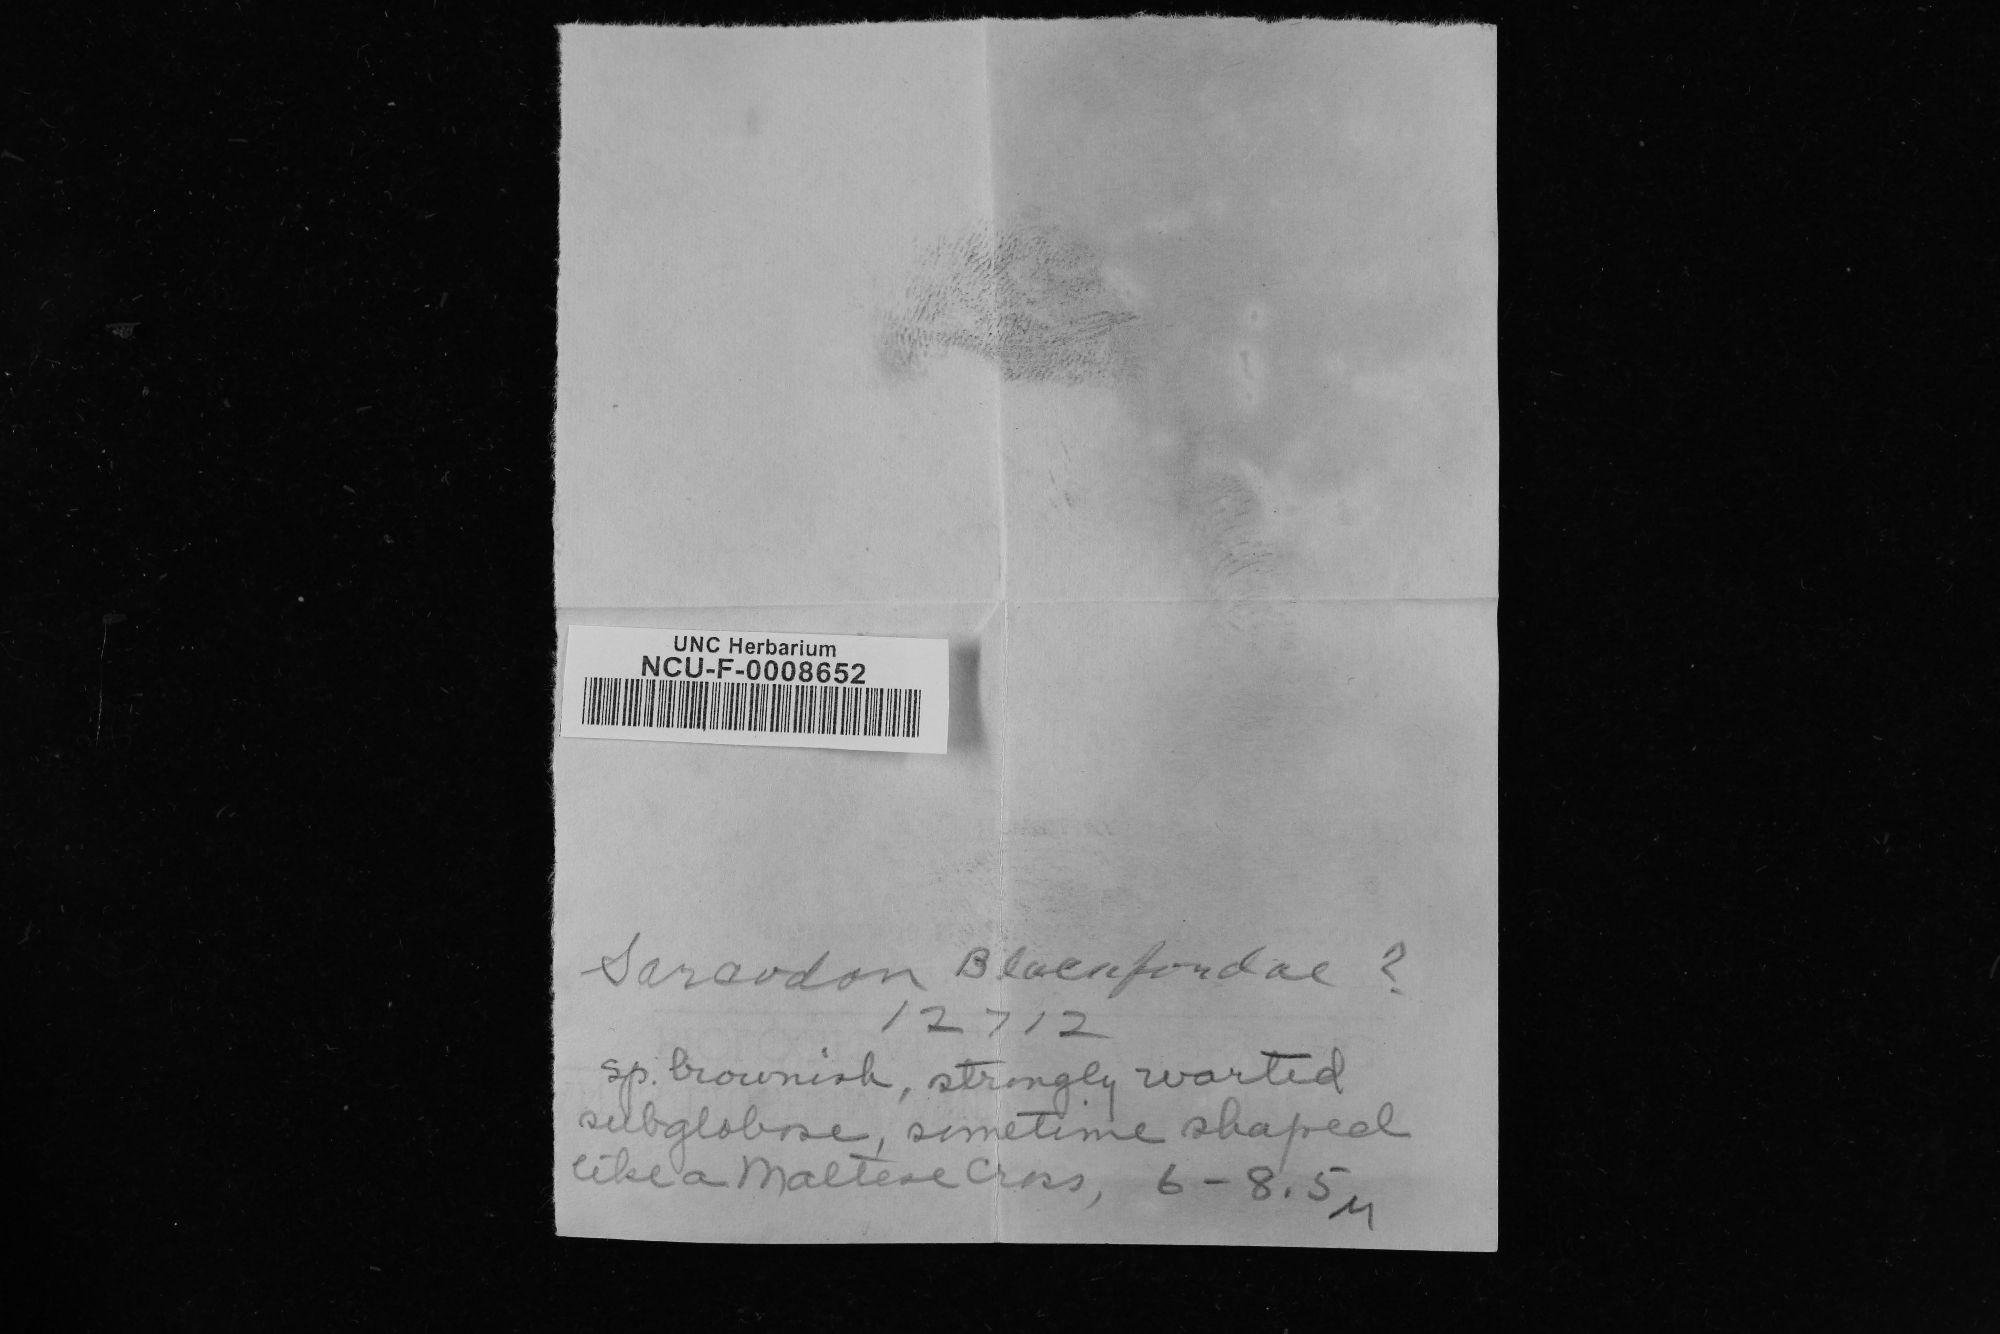 UNC Herbarium
NCU-F-0008652
Sarcodon Blackfordae ?
12712
sp. brownish, strongly warted
subglobose, sometime shaped
like a Maltese Cross, 6-8.5 µ